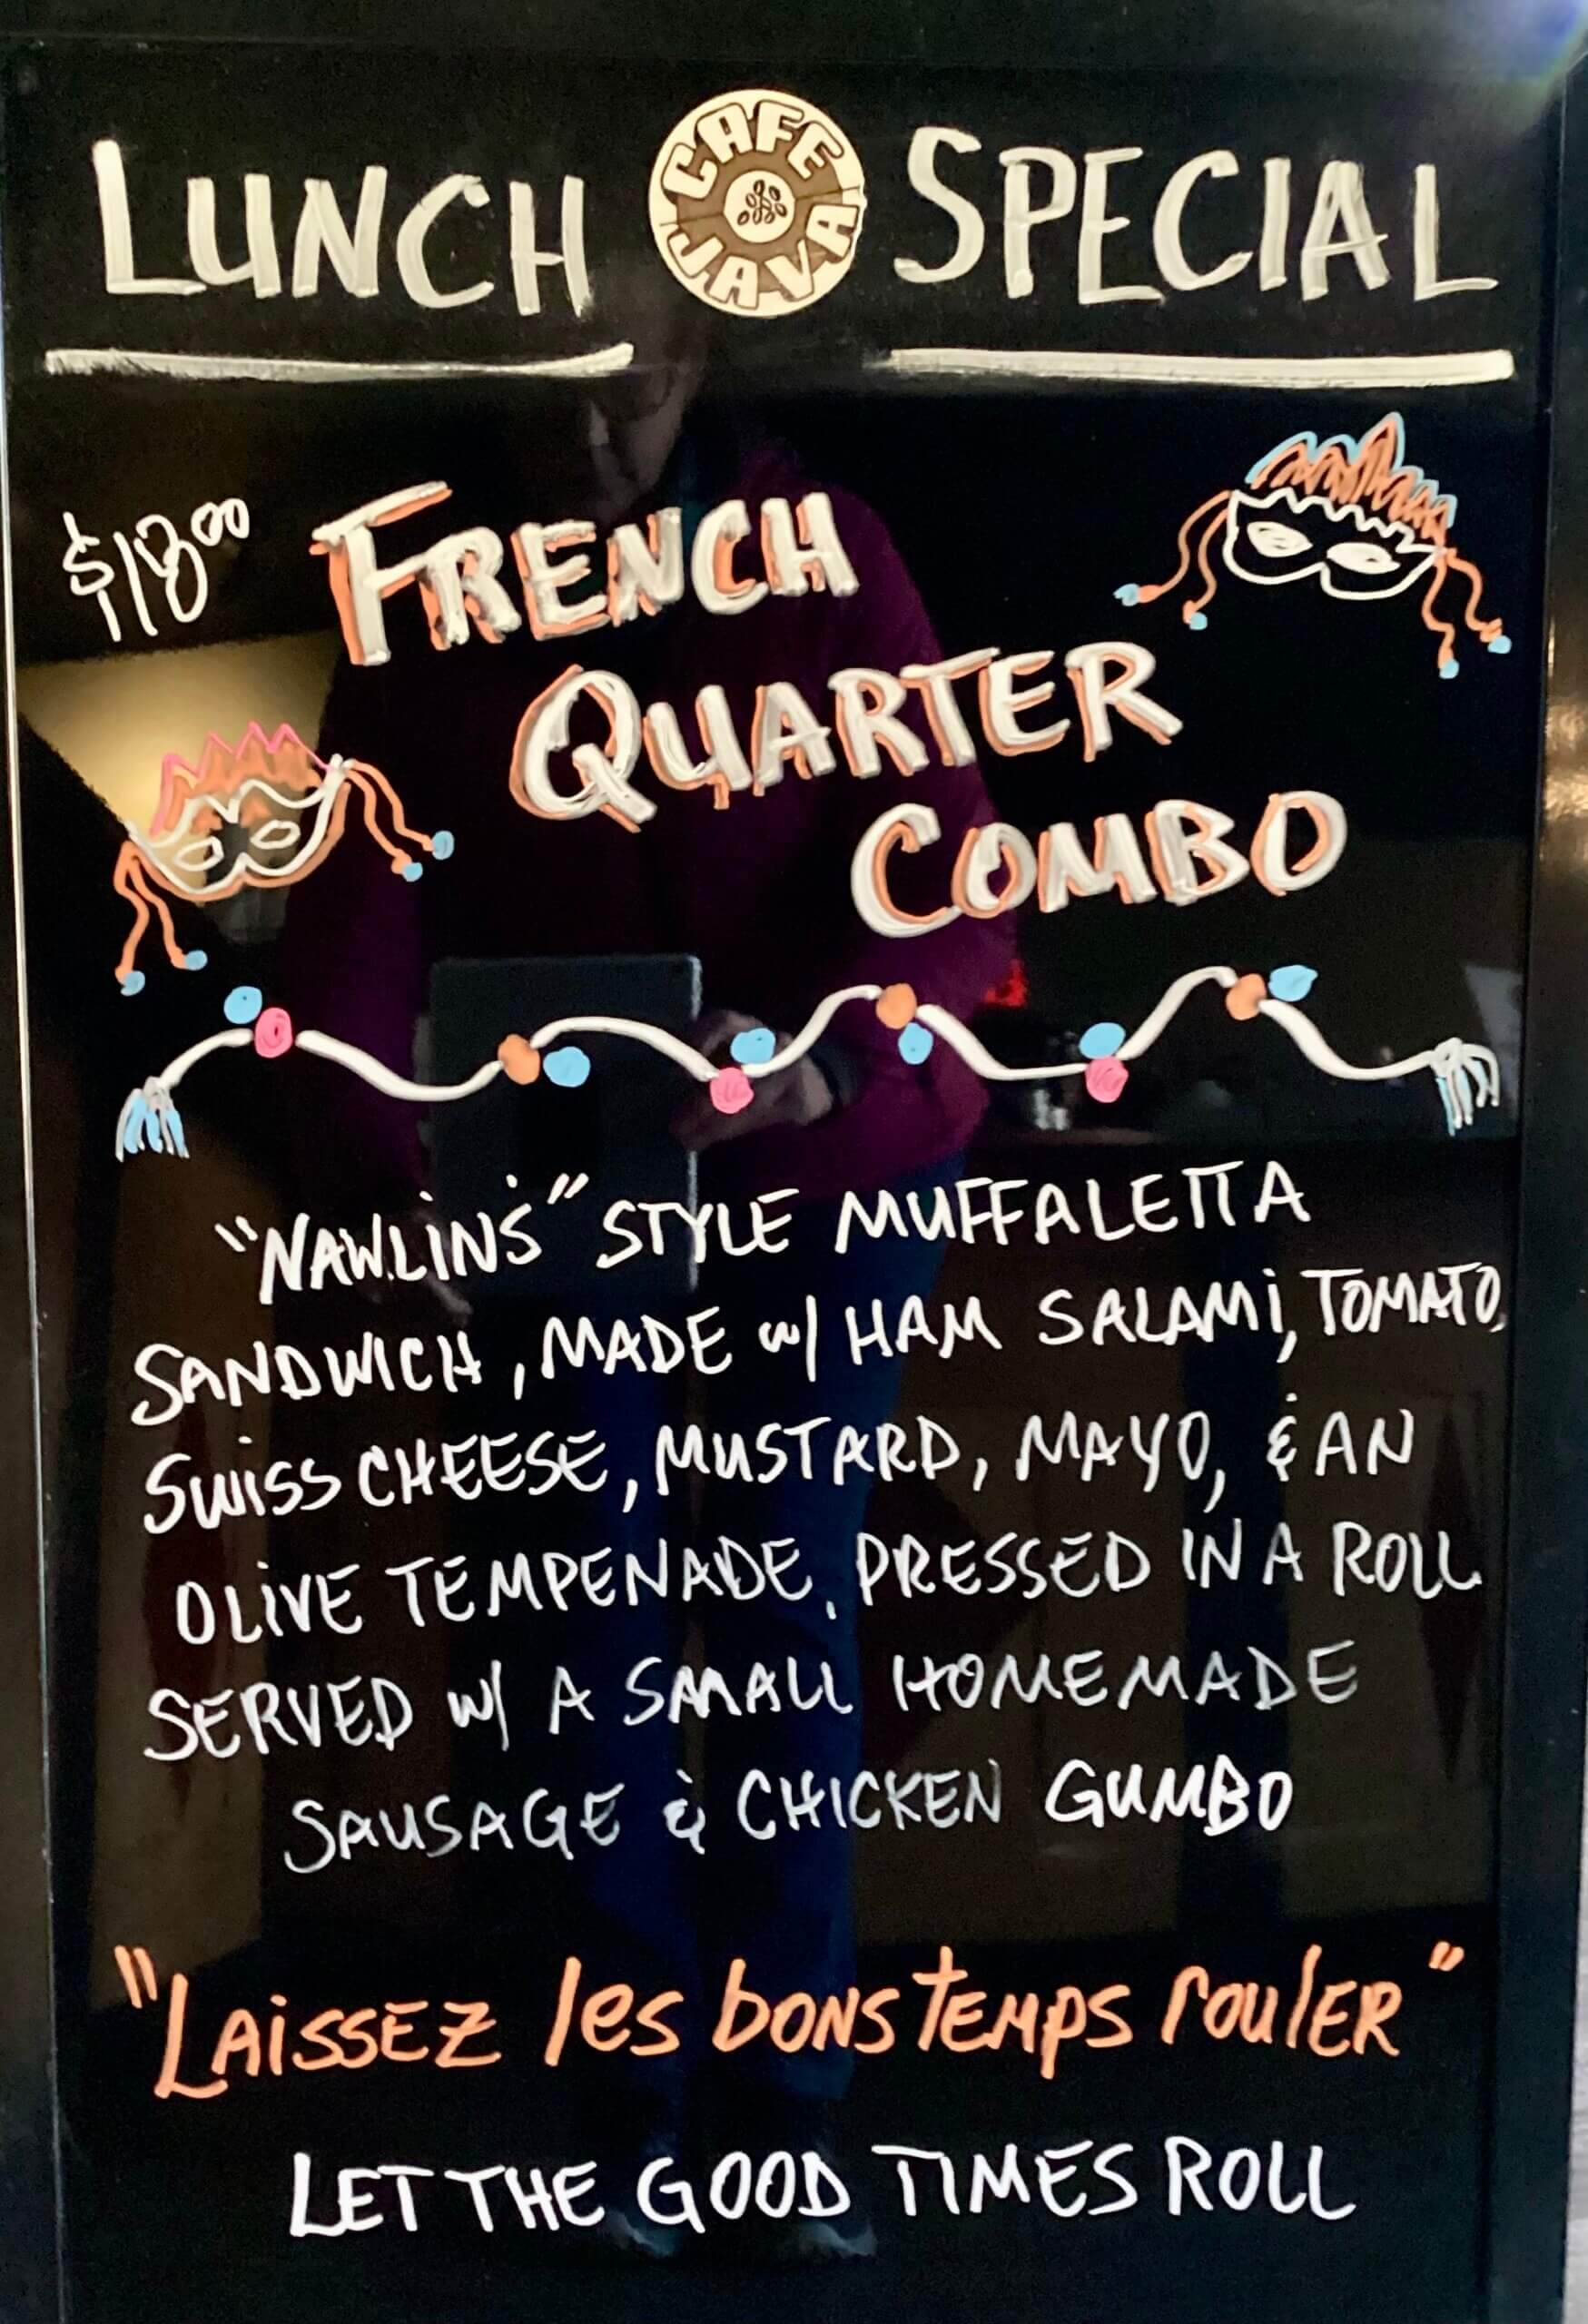 LUNCH CAFE JAVA SPECIAL
$18.00
FRENCH
QUARTER
COMBO
"NAWLINS" STYLE MUFFALETTA
SANDWICH, MADE W/ HAM SALAMI, TOMATO,
SWISS CHEESE, MUSTARD, MAYO, & AN
OLIVE TEMPENADE, PRESSED IN A ROLL
SERVED W/ A SMALL HOMEMADE
SAUSAGE & CHICKEN GUMBO
"LAISSEZ les bONS TEMPS roulER"
LET THE GOOD TIMES ROLL